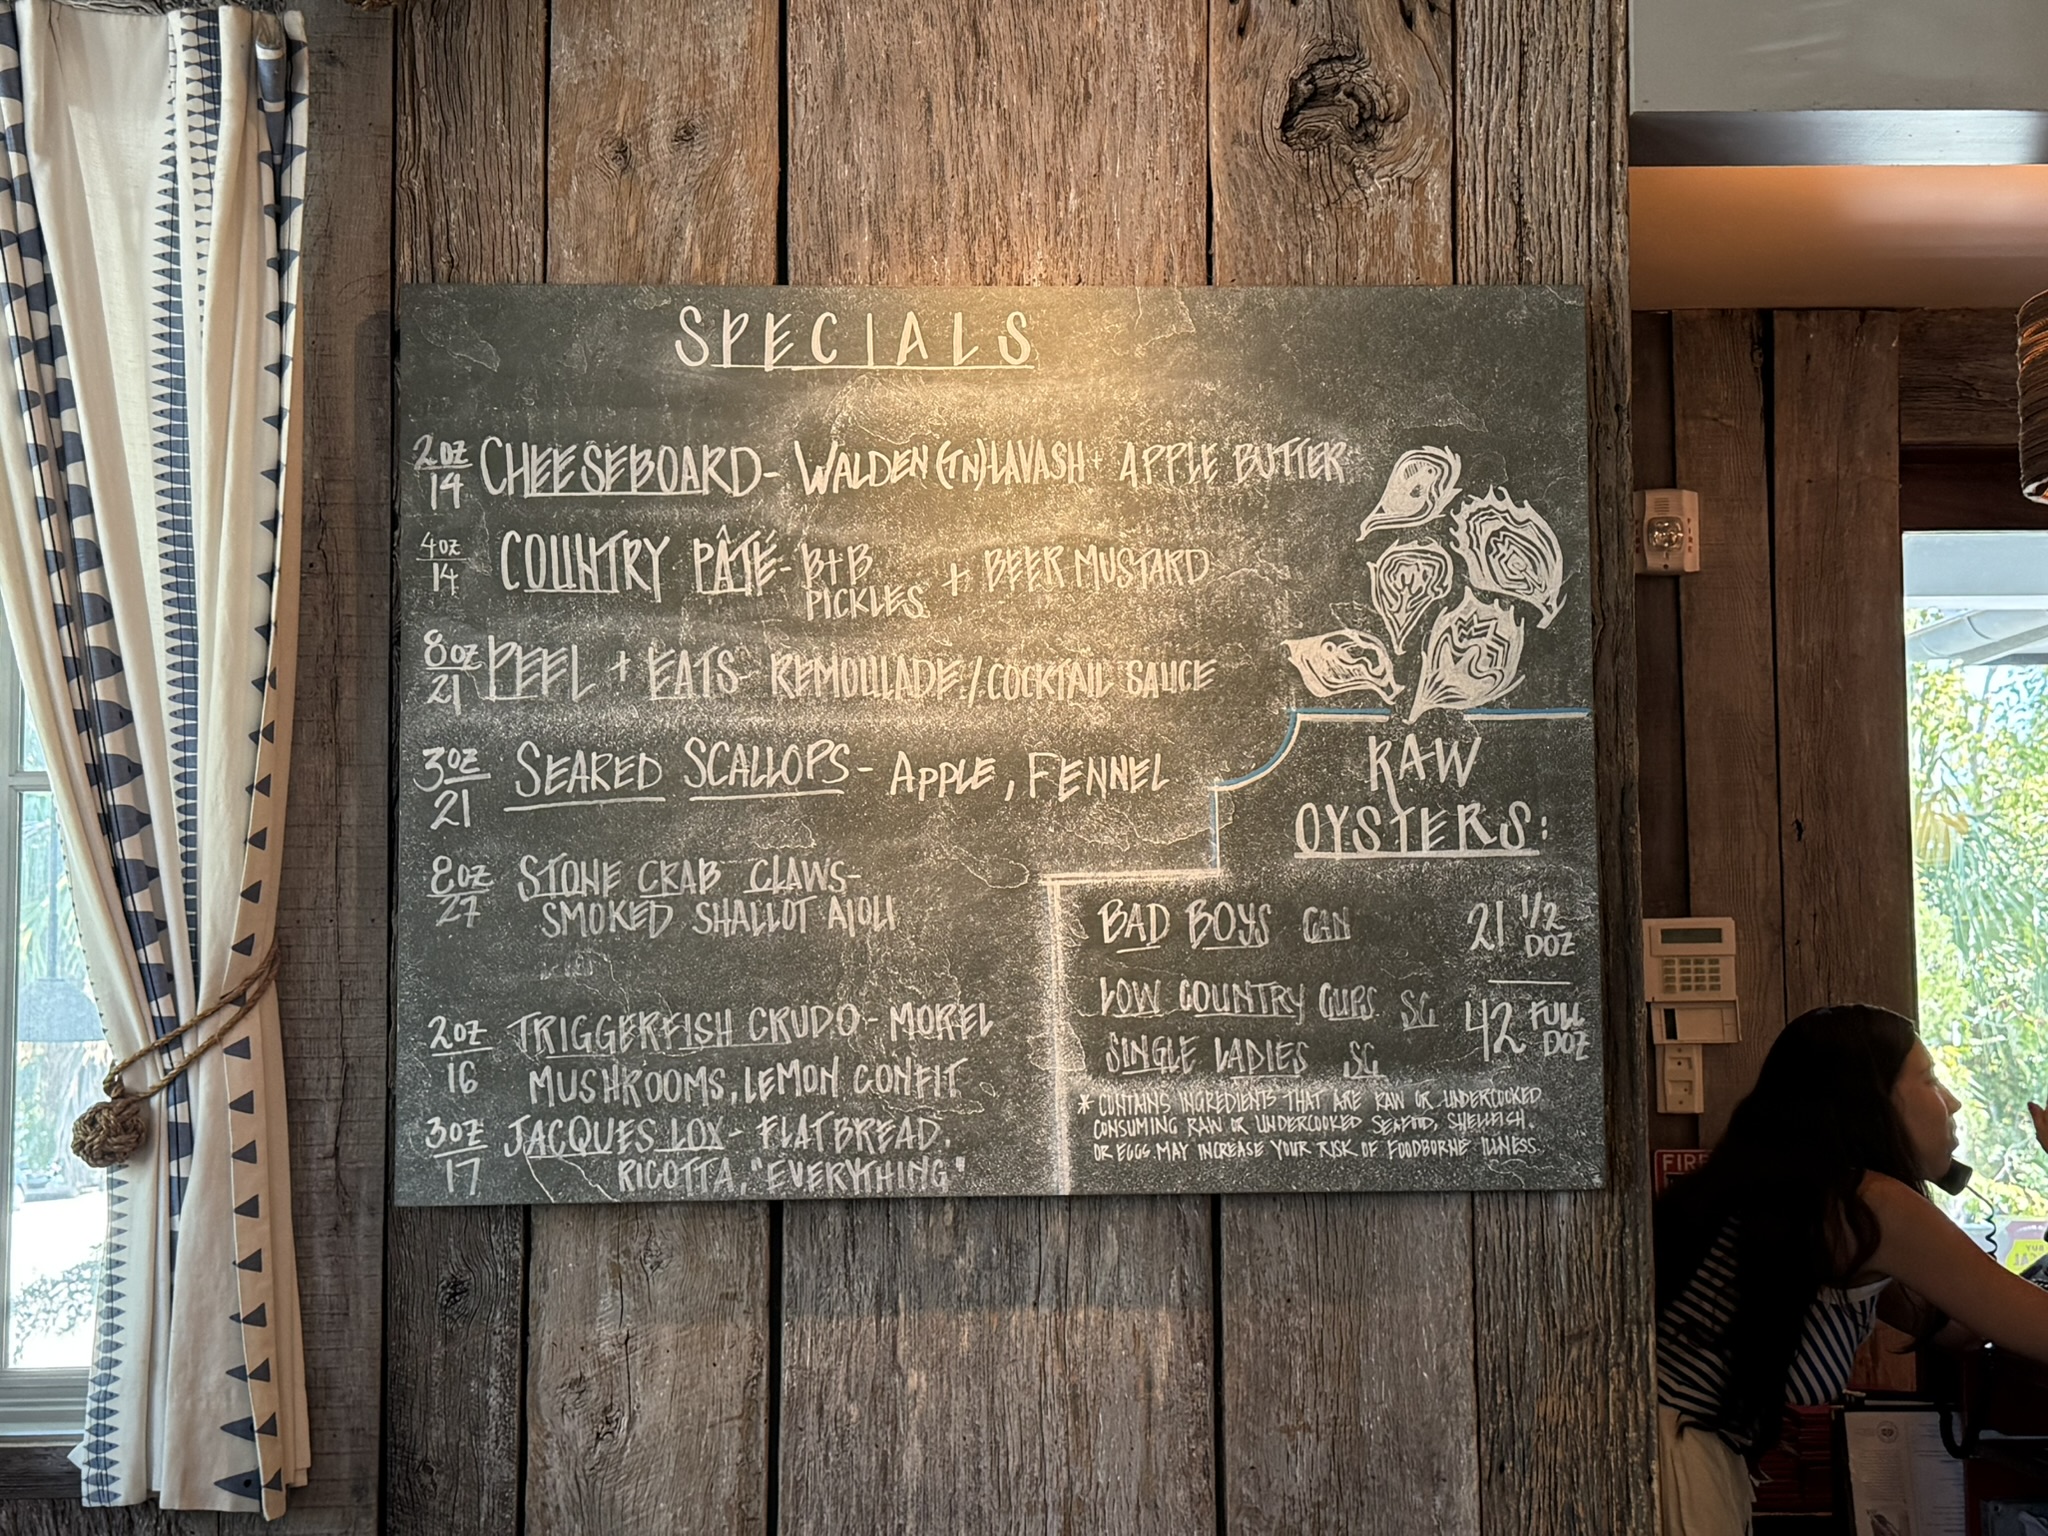 SPECIALS
2OZ CHEESEBOARD- WALDEN (TN) LAVASH + APPLE BUTTER
14
4OZ COUNTRY PÂTÉ- B+B + BEER MUSTARD
14 PICKLES
8OZ PEEL + EATS- REMOULADE / COCKTAIL SAUCE
21
3OZ SEARED SCALLOPS- APPLE, FENNEL
21
8OZ STONE CRAB CLAWS-
27 SMOKED SHALLOT AIOLI
2OZ TRIGGERFISH CRUDO- MOREL
16 MUSHROOMS, LEMON CONFIT
3OZ JACQUES LOX- FLATBREAD,
17 RICOTTA, "EVERYTHING"
RAW
OYSTERS:
BAD BOYS CAN 21 1/2 DOZ
LOW COUNTRY CUPS SC
SINGLE LADIES SC
42 FULL DOZ
* CONTAINS INGREDIENTS THAT ARE RAW OR UNDERCOOKED
CONSUMING RAW OR UNDERCOOKED SEAFOOD, SHELLFISH.
OR EGGS MAY INCREASE YOUR RISK OF FOODBORNE ILLNESS.
FIRE
FIRE